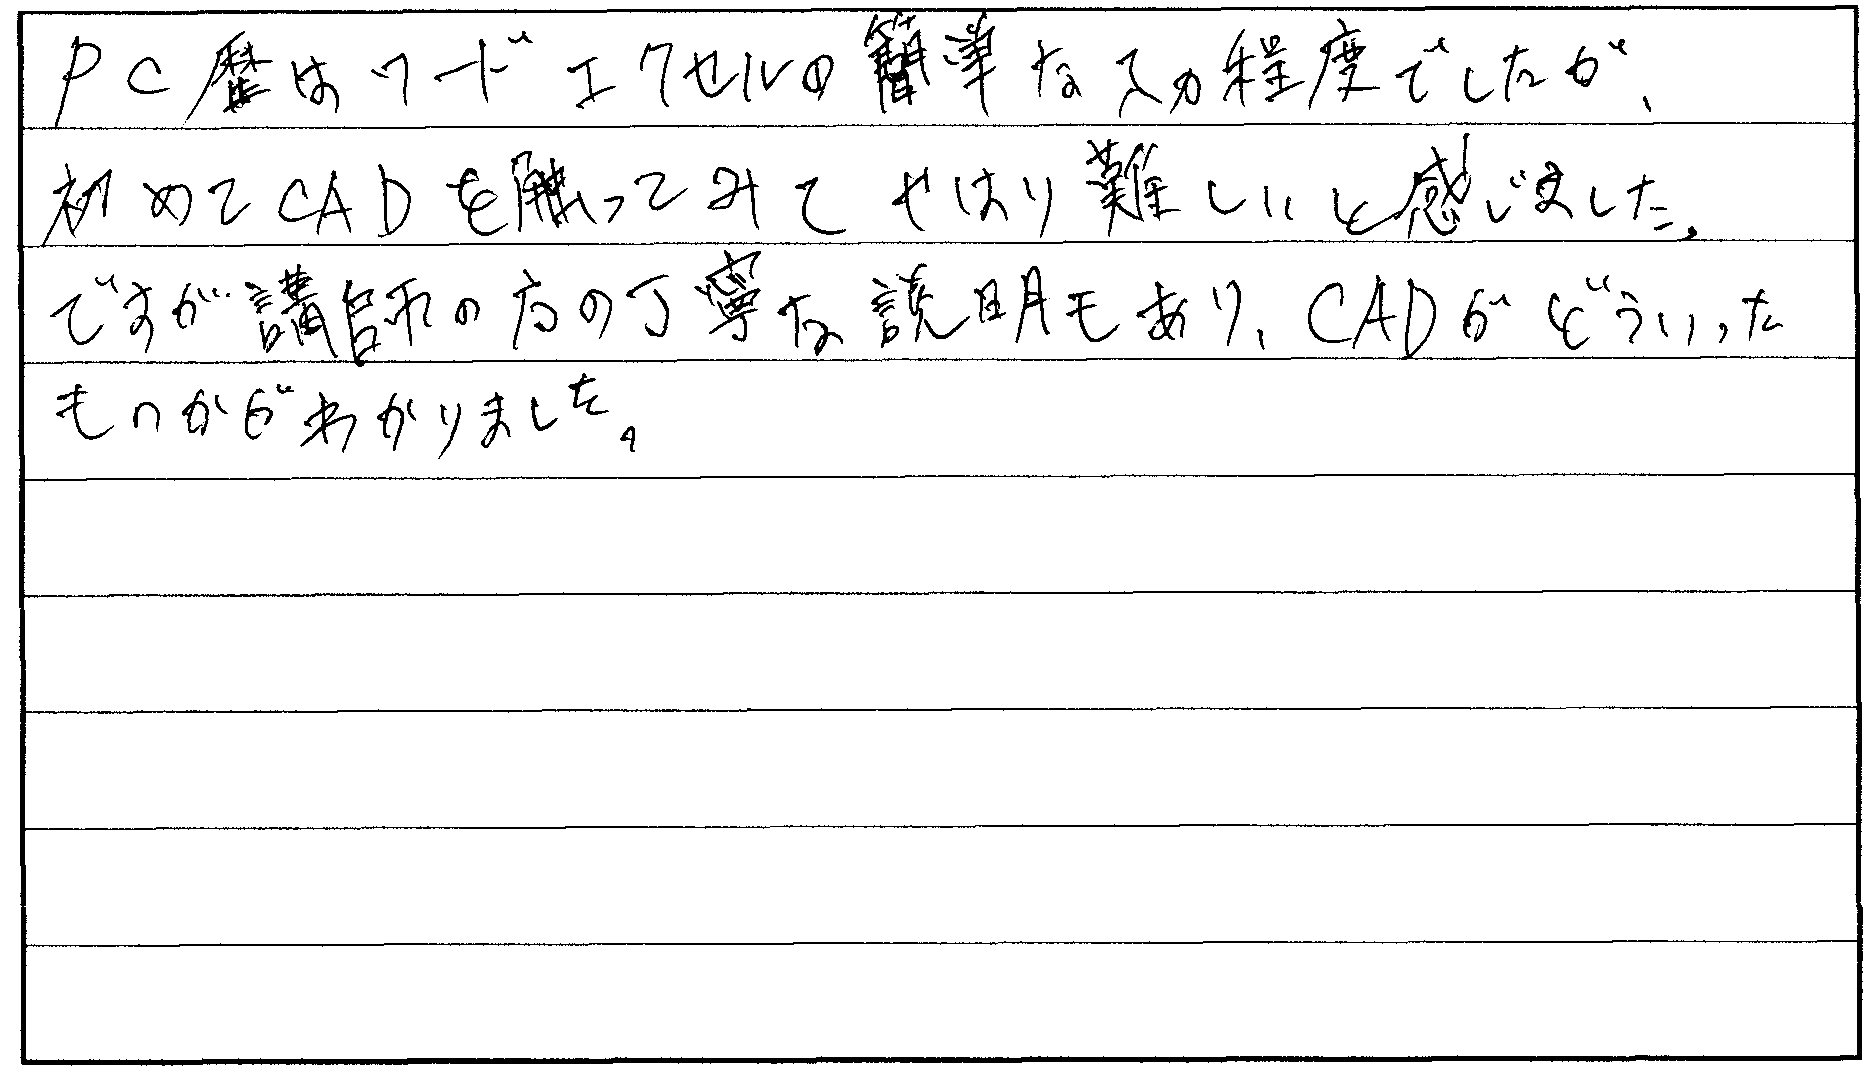 PC歴はワードエクセルの簡単な入力程度でしたが、
初めてCADを触ってみてやはり難しいと感じました。
ですが講師の方の丁寧な説明もあり、CADがどういった
ものかがわかりました。